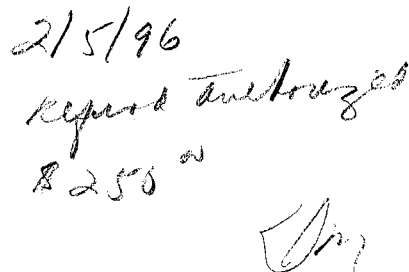 2/5/96
Refund Authorized
$250 00